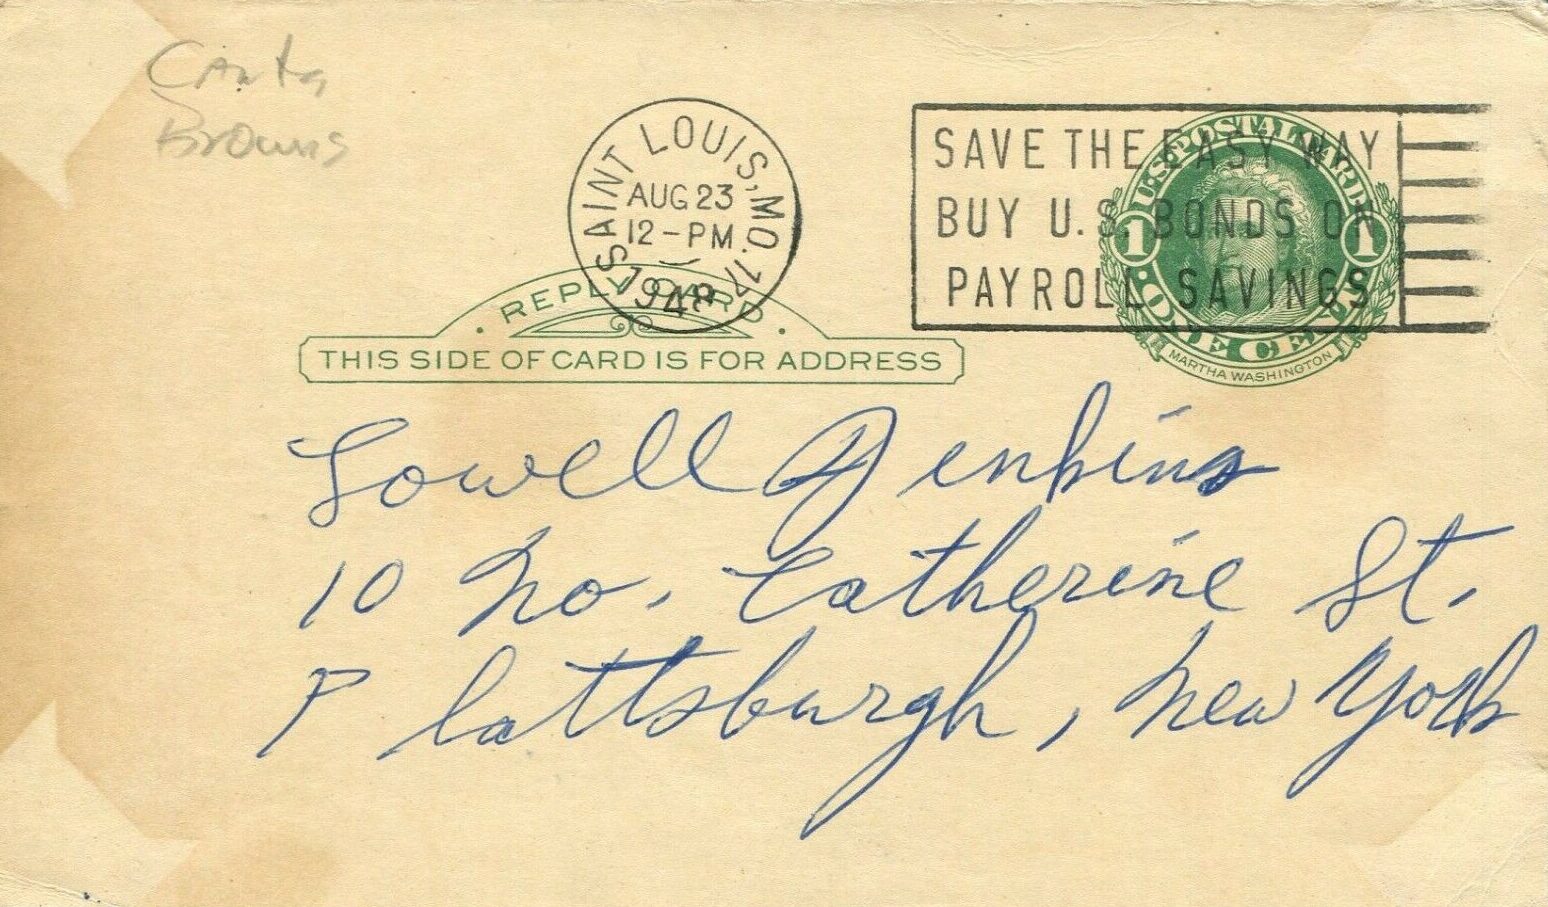 Browns
SAINT LOUIS, MO. 17
AUG 23
12-PM
1948
SAVE THE EASY WAY
BUY U.S. BONDS ON
PAYROLL SAVINGS
U.S. POSTAL CARD
1 1
ONE CENT
MARTHA WASHINGTON
· REPLY CARD ·
THIS SIDE OF CARD IS FOR ADDRESS
Lowell Jenkins
10 No. Catherine St.
Plattsburgh, New York